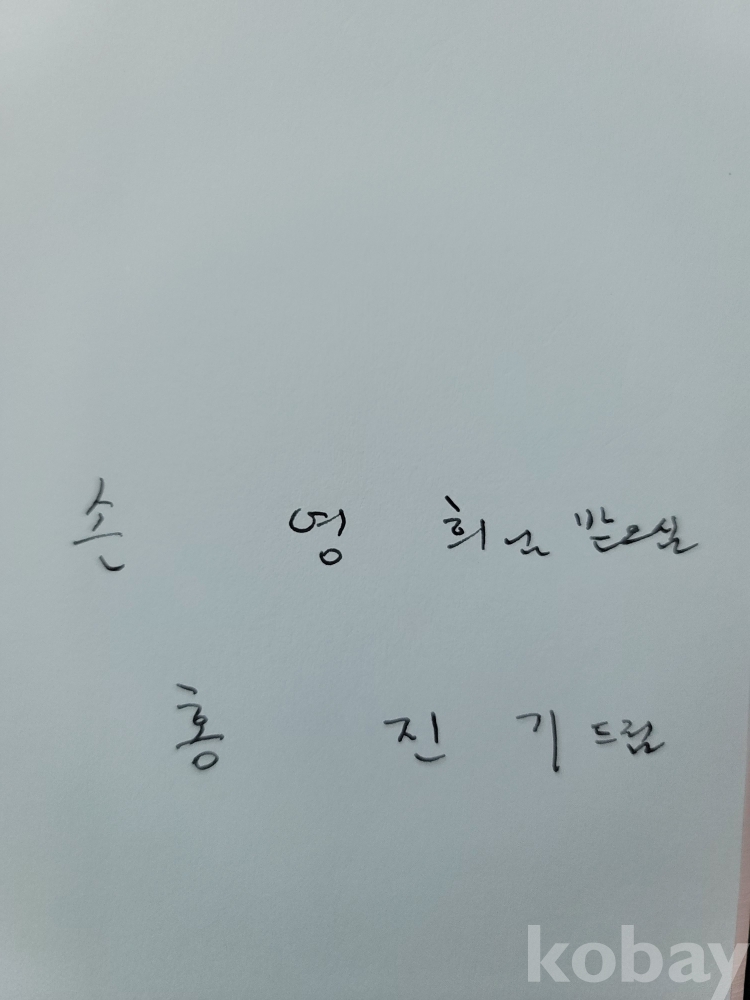 손 영 희님 받으심
홍 진 기 드림
kobay